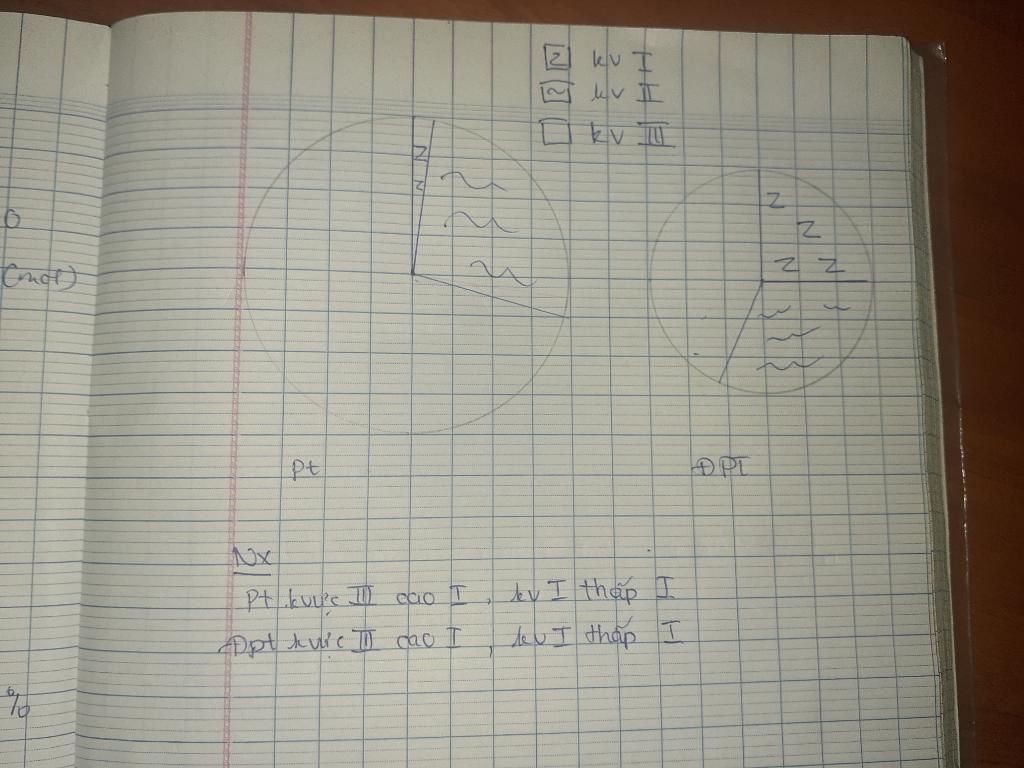 kv I
kv II
kv III
Z
Z
Z
Z
Z Z
0
(mol)
Pt
ĐPT
Nx
Pt kvực III cao I, kv I thấp I
Đpt kvực III cao I, kv I thấp I
%